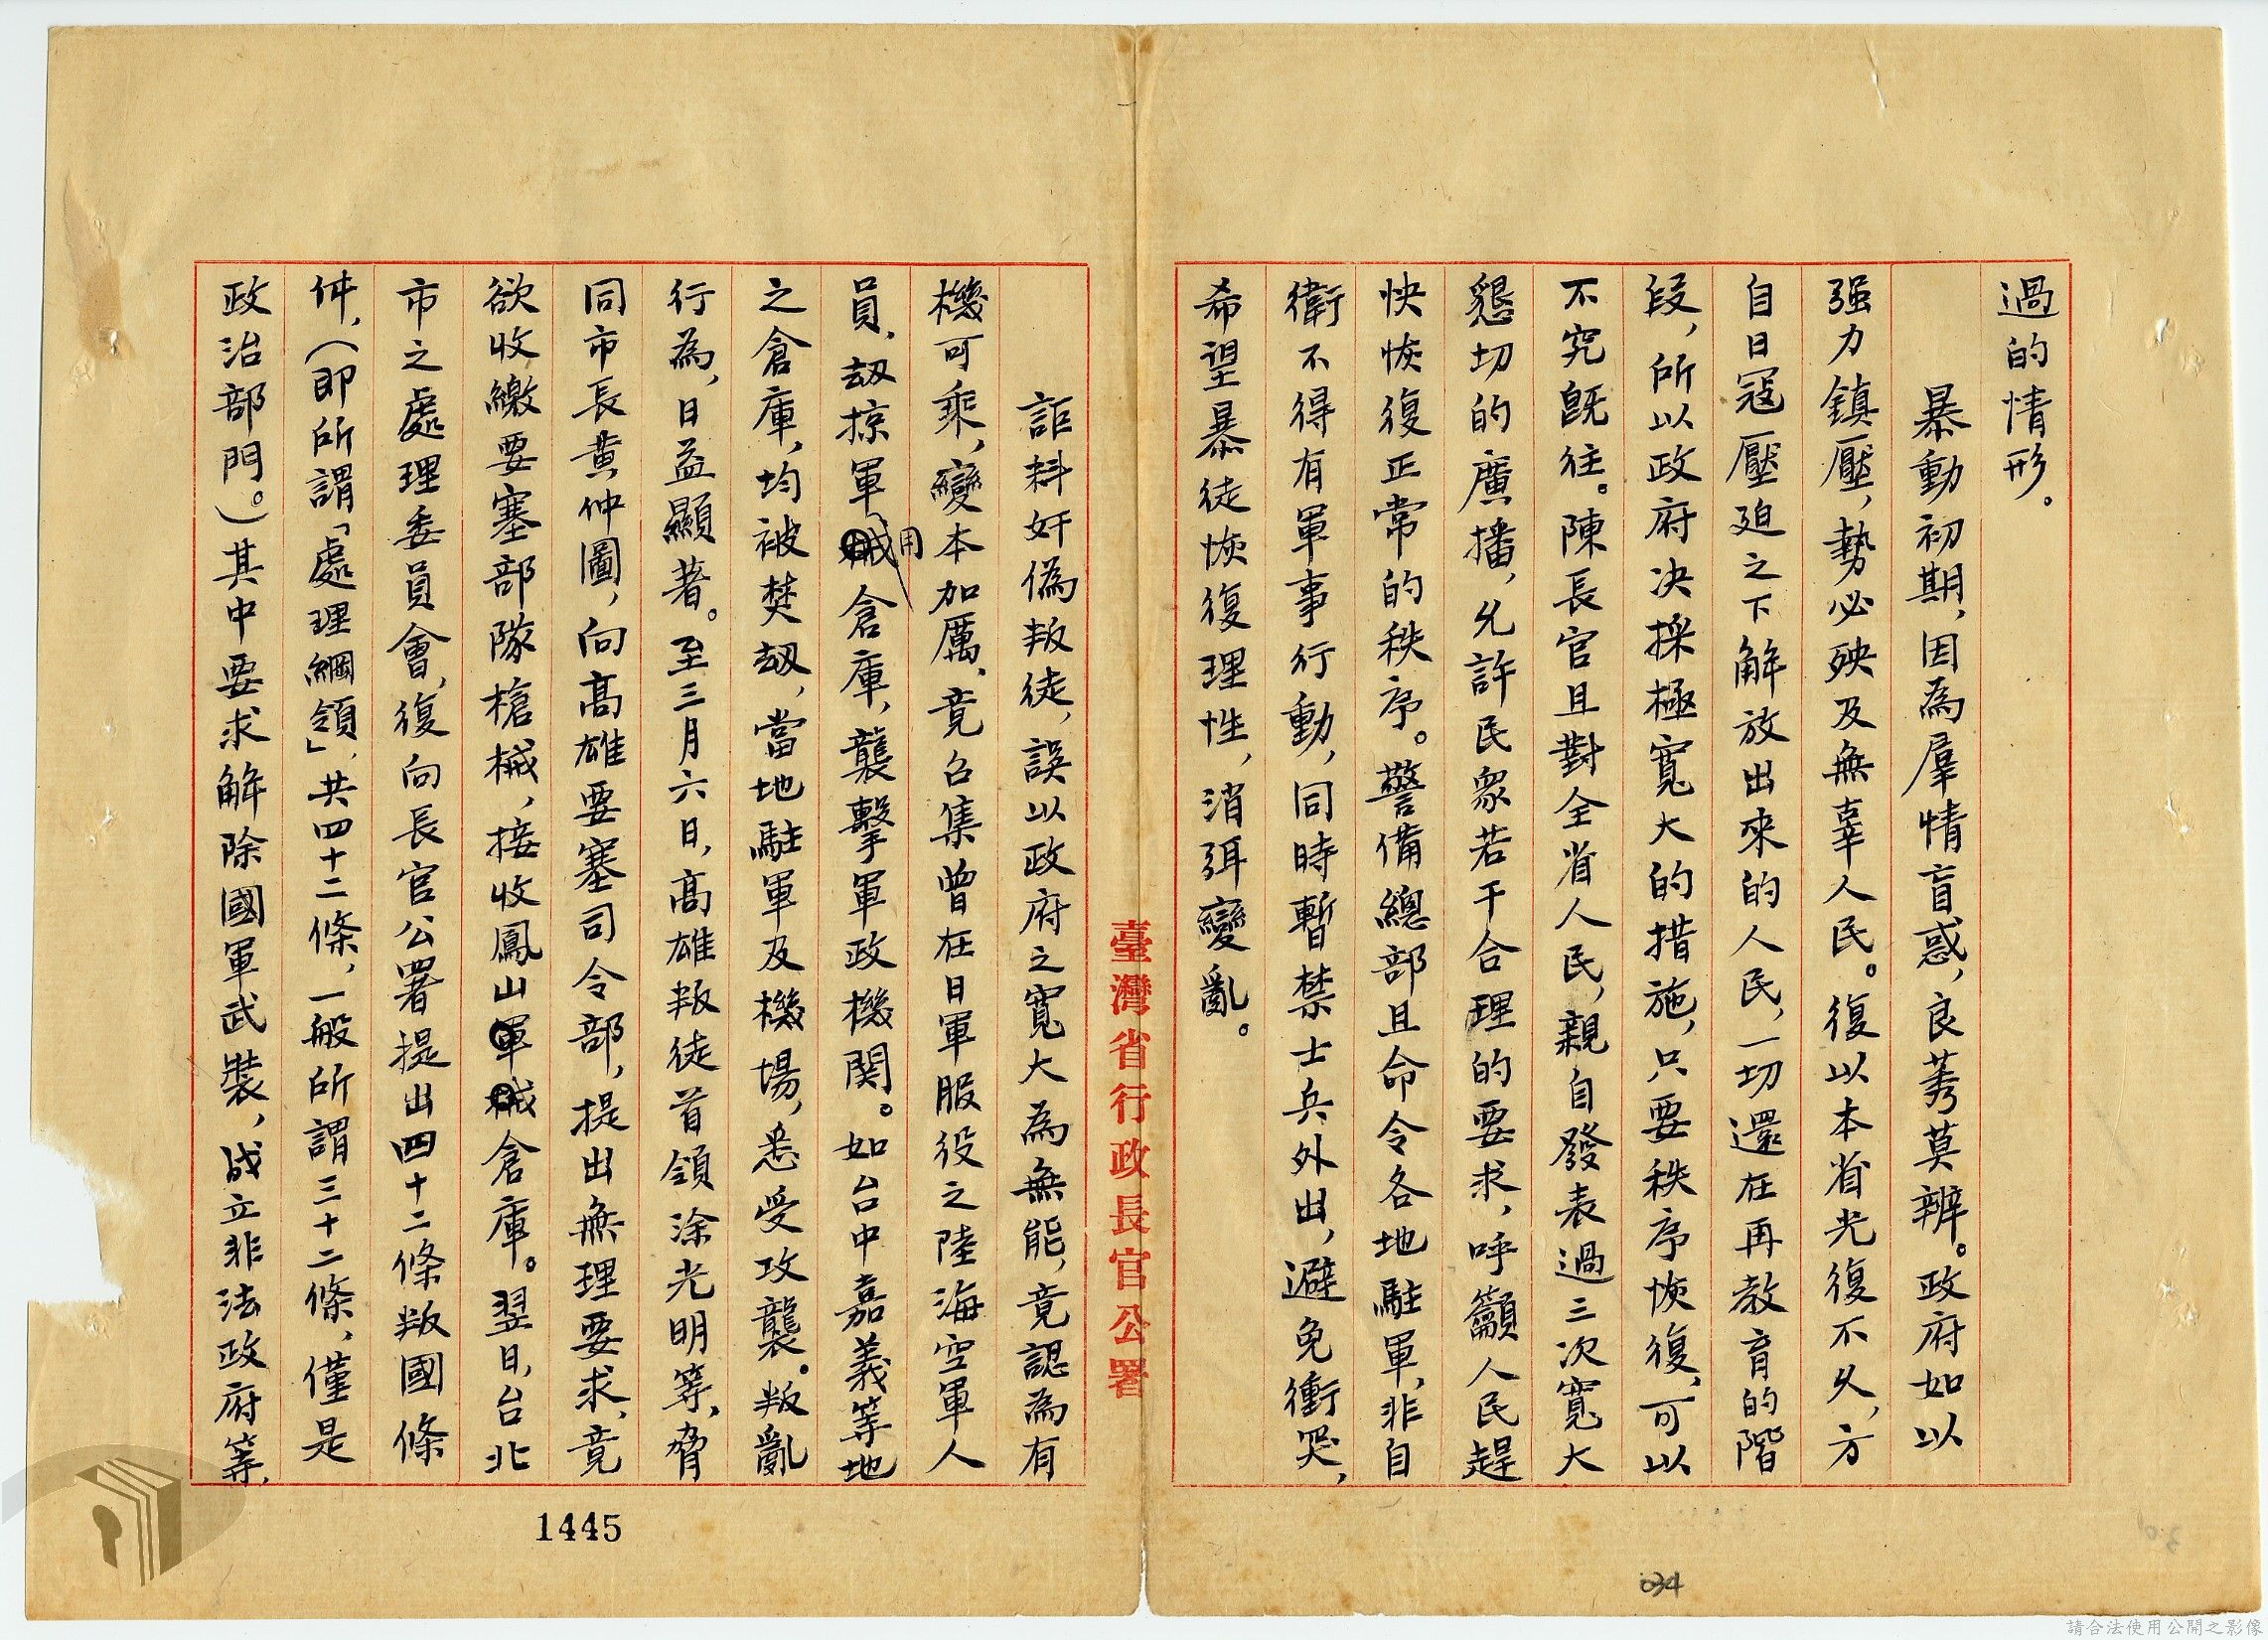 過的情形。
暴動初期，因為羣情盲惑，良莠莫辨。政府如以
强力鎮壓，勢必殃及無辜人民。復以本省光復不久，方
自日寇壓迫之下解放出來的人民，一切還在再教育的階
段，所以政府决採極寬大的措施，只要秩序恢復，可以
不究旣往。陳長官且對全省人民，親自發表過三次寬大
懇切的廣播，允許民衆若干合理的要求，呼籲人民趕
快恢復正常的秩序。警備總部且命令各地駐軍，非自
衛不得有軍事行動，同時暫禁士兵外出，避免衝突，
希望暴徒恢復理性，消弭變亂。
臺灣省行政長官公署
詎料奸偽叛徒，誤以政府之寬大為無能，竟認為有
機可乘，變本加厲，竟召集曾在日軍服役之陸海空軍人
員，刼掠軍用倉庫，襲擊軍政機関。如台中嘉義等地
之倉庫，均被焚刼，當地駐軍及機場，悉受攻襲。叛亂
行為，日益顯著。至三月六日，高雄叛徒首領涂光明等，脅
同市長黄仲圖，向高雄要塞司令部，提出無理要求，竟
欲收繳要塞部隊槍械，接收鳳山軍械倉庫。翌日，台北
市之處理委員會，復向長官公署提出四十二條叛國條
件，（即所謂「處理綱領」，共四十二條，一般所謂三十二條，僅是
政治部門。）其中要求解除國軍武裝，成立非法政府等，
1445
034
請合法使用公開之影像